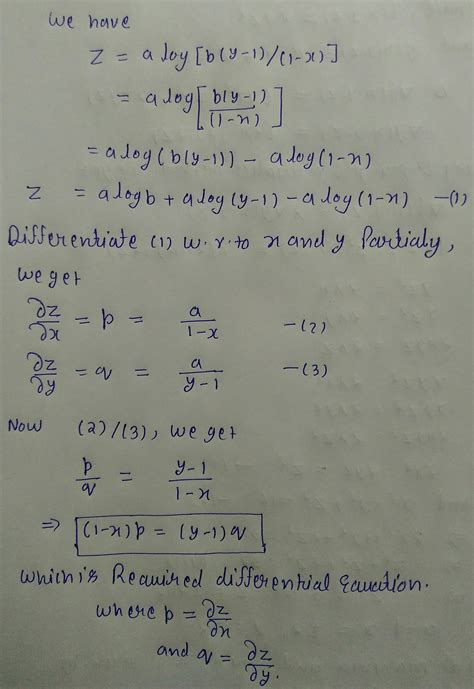 we have
z = a log [b(y-1)/(1-x)]
= a log [b(y-1)/(1-x)]
= a log (b(y-1)) - a log (1-x)
z = a log b + a log (y-1) - a log (1-x) —(1)
Differentiate (1) w.r.to x and y Partialy,
we get
∂z/∂x = p = a/1-x —(2)
∂z/∂y = q = a/y-1 —(3)
Now (2)/(3), we get
p/q = y-1/1-x
⇒ (1-x)p = (y-1)q
which is Required differential Equation.
where p = ∂z/∂x
and q = ∂z/∂y.